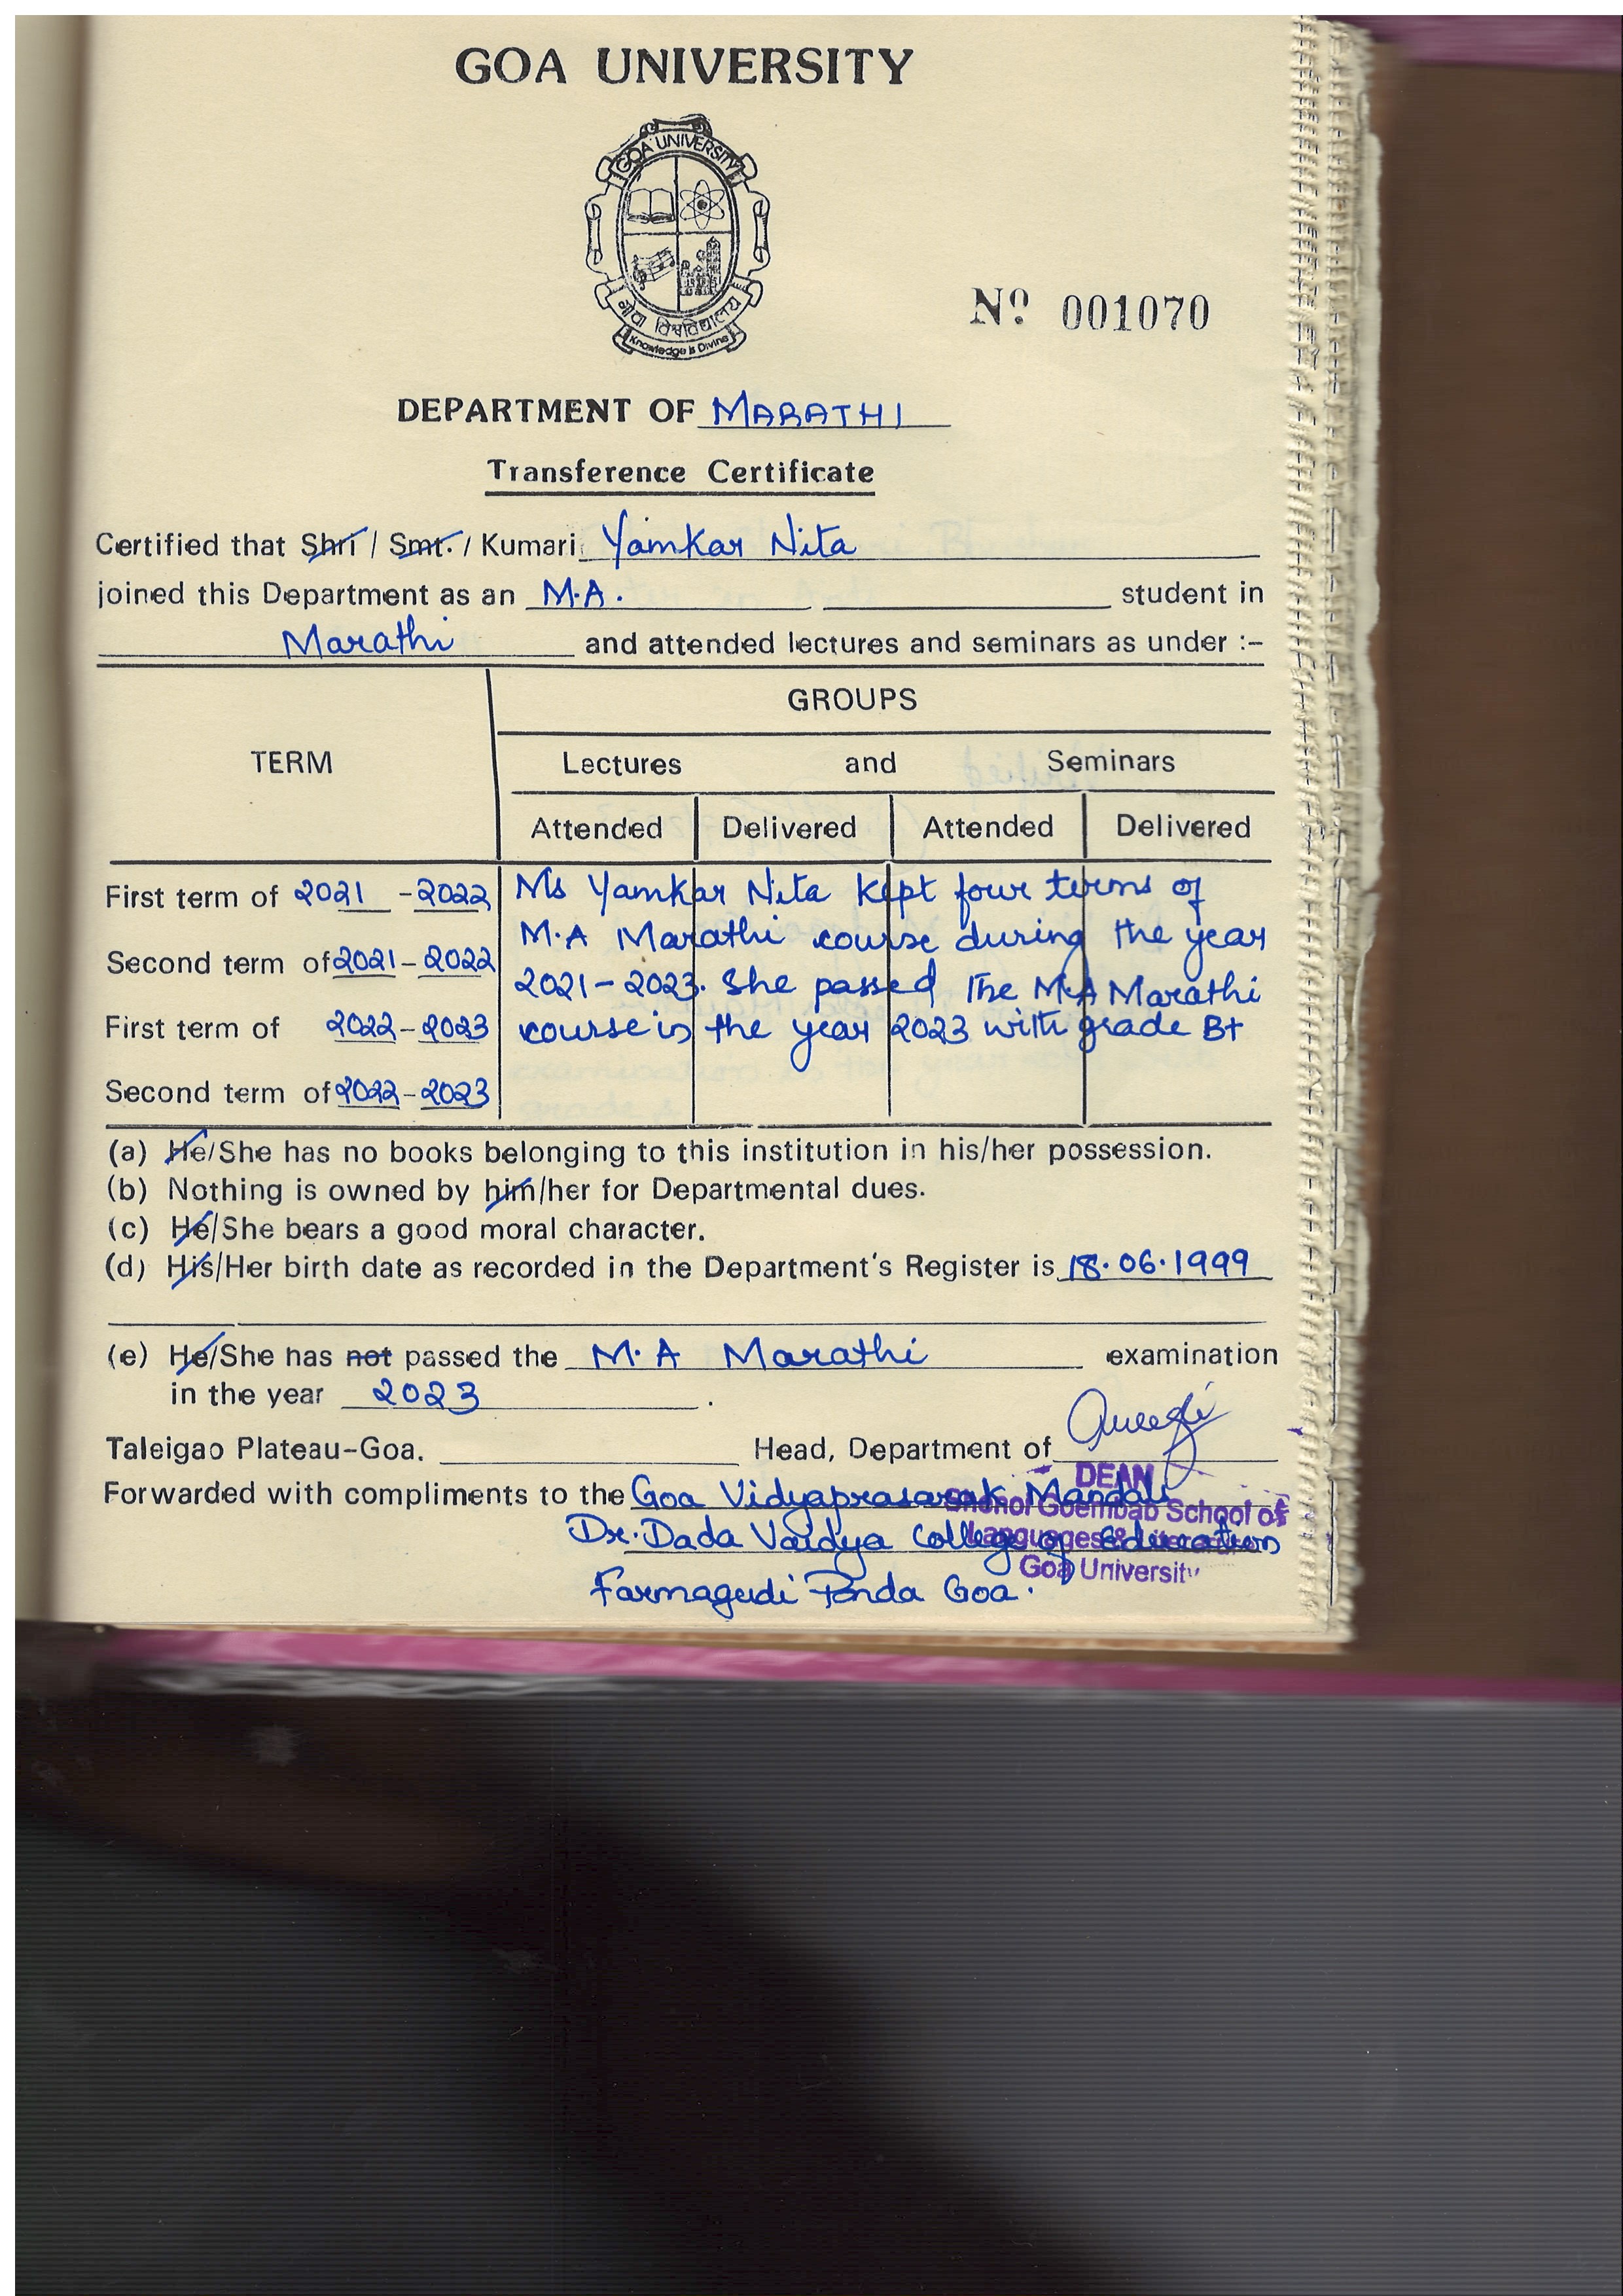 GOA UNIVERSITY
GOA UNIVERSITY
गोंय विश्वविद्यालय
Knowledge is Divine
Nº 001070
DEPARTMENT OF MARATHI
Transference Certificate
Certified that Shri / Smt. / Kumari Yamkar Nita
joined this Department as an M.A. student in
Marathi and attended lectures and seminars as under :-
GROUPS
TERM
Lectures and Seminars
Attended Delivered Attended Delivered
First term of 2021 - 2022
Second term of 2021 - 2022
First term of 2022 - 2023
Second term of 2022 - 2023
Ms Yamkar Nita kept four terms of
M.A Marathi course during the year
2021 - 2023. She passed The M.A Marathi
course in the year 2023 with grade B+
(a) He/She has no books belonging to this institution in his/her possession.
(b) Nothing is owned by him/her for Departmental dues.
(c) He/She bears a good moral character.
(d) His/Her birth date as recorded in the Department's Register is 18.06.1999
(e) He/She has not passed the M.A Marathi examination
in the year 2023 .
Taleigao Plateau-Goa. Head, Department of
DEAN
Shenoi Goembab School of
Languages & Literature
Goa University
Forwarded with compliments to the Goa Vidyaprasarak Mandal
Dr. Dada Vaidya College of Education
Farmagudi Ponda Goa.